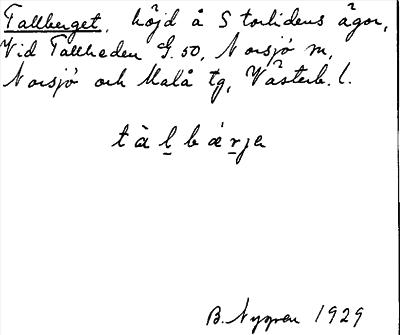 Tallberget, höjd å Storlidens ägor,
Vid Tallheden G. 50, Norsjö sn,
Norsjö och Malå tg, Västerb. l.
tàlbárjə
B. Nygren 1929